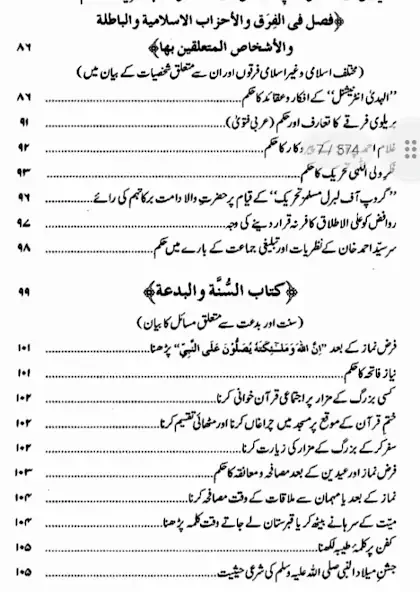 ﴿فصل فى الفِرَق والأحزاب الاسلامية والباطلة
والأشخاص المتعلقين بها﴾ ۸۶
(مختلف اسلامی و غیر اسلامی فرقوں اور ان سے متعلق شخصیات کے بیان میں)
"الہدیٰ انٹرنیشنل" کے افکار و عقائد کا حکم ۸۶
بریلوی فرقے کا تعارف اور حکم (عربی فتویٰ) ۹۱
غلام احمد 7 / 574 کار کا حکم ۹۲
فکرِ ولی اللہی تحریک کا حکم ۹۳
"گروپ آف لبرل مسلمز تحریک" کے قیام پر حضرتِ والا دامت برکاتہم کی رائے ۹۶
روافض کو علی الاطلاق کافر نہ قرار دینے کی وجہ ۹۷
سر سیّد احمد خان کے نظریات اور تبلیغی جماعت کے بارے میں حکم ۹۸
﴿کتاب السُّنَّة والبدعة﴾ ۹۹
(سنت اور بدعت سے متعلق مسائل کا بیان)
فرض نماز کے بعد "اِنَّ اللهَ وَمَلٰٓئِکَتَهٗ یُصَلُّوْنَ عَلَی النَّبِیِّ" پڑھنا ۱۰۱
نیاز فاتحہ کا حکم ۱۰۱
کسی بزرگ کے مزار پر اجتماعی قرآن خوانی کرنا ۱۰۲
ختم قرآن کے موقع پر مسجد میں چراغاں کرنا اور مٹھائی تقسیم کرنا ۱۰۲
سفر کرکے بزرگ کے مزار کی زیارت کرنا ۱۰۲
فرض نماز اور عیدین کے بعد مصافحہ و معانقہ کا حکم ۱۰۳
نماز کے بعد یا مہمان سے ملاقات کے وقت مصافحہ کرنا ۱۰۴
میّت کے سرہانے بیٹھ کر یا قبرستان لے جاتے وقت کلمہ پڑھنا ۱۰۴
کفن پر کلمۂ طیبہ لکھنا ۱۰۵
جشنِ میلاد النبی صلی اللہ علیہ وسلم کی شرعی حیثیت ۱۰۵